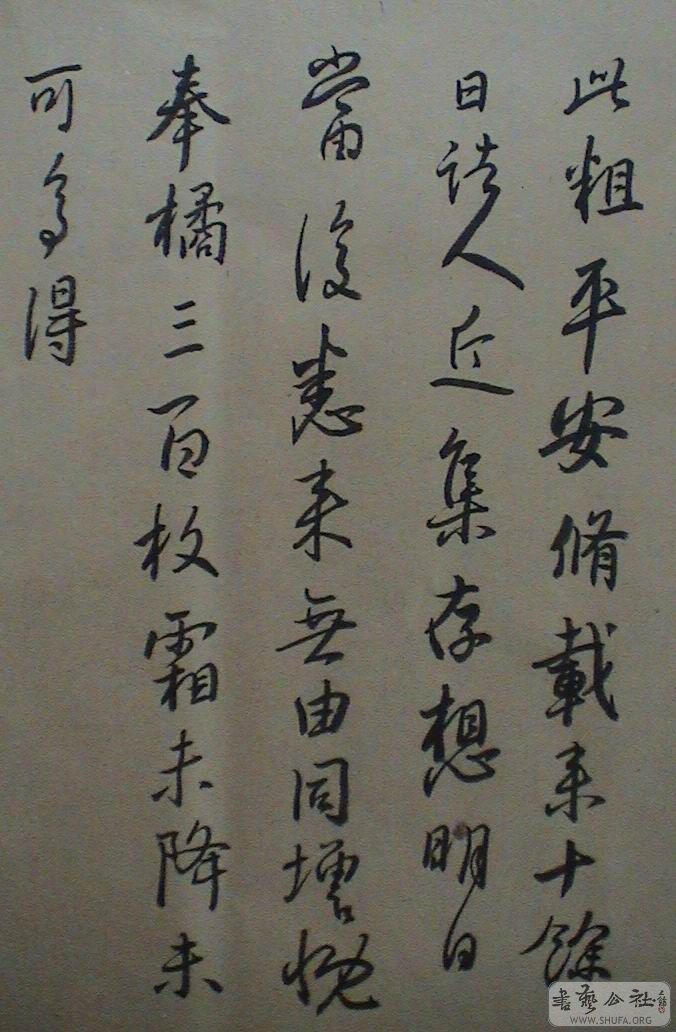 此粗平安脩載来十餘
日諸人近集存想明日
當復悉来無由同增慨
奉橘三百枚霜未降未
可多得
書藝公社
WWW.SHUFA.ORG